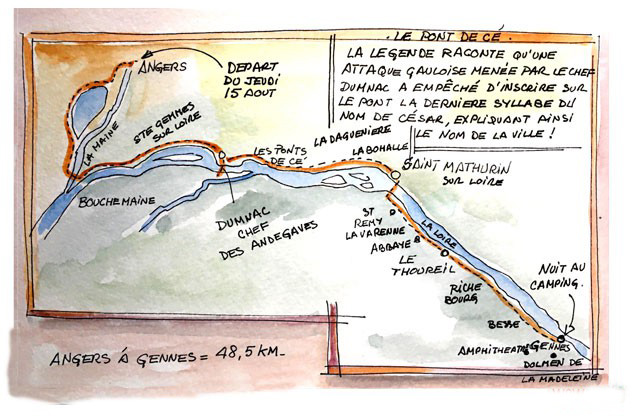 . LE PONT DE CÉ .
LA LEGENDE RACONTE, QU'UNE
ATTAQUE GAULOISE MENÉE PAR LE CHEF
DUMNAC A EMPÊCHÉ D'INSCRIRE SUR
LE PONT LA DERNIERE SYLLABE DU
NOM DE CÉSAR, EXPLIQUANT AINSI
LE NOM DE LA VILLE !
ANGERS
DEPART
DU JEUDI
15 AOUT
LA MAINE
STE GEMMES
SUR LOIRE
BOUCHEMAINE
LES PONTS
DE CÉ
DUMNAC
CHEF
DES ANDEGAVES
LA DAGUENIERE
LA BOHALLE
SAINT MATHURIN
SUR LOIRE
LA LOIRE
ST
REMY
LA VARENNE
ABBAYE
LE
THOUREIL
RICHE
BOURG
BESSE
NUIT AU
CAMPING.
GENNES
AMPHITHEATRE
DOLMEN DE
LA MADELEINE
ANGERS À GENNES = 48,5 KM_